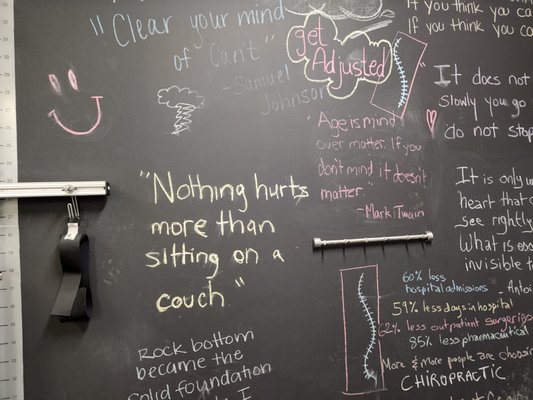 "Clear your mind
of Can't"
- Samuel
Johnson
get
Adjusted
If you think you ca
If you think you ca
It does not
slowly you go
do not stop
"Age is mind
over matter. If you
don't mind it doesn't
matter."
- Mark Twain
"Nothing hurts
more than
sitting on a
couch."
It is only
heart that
see rightly
What is
invisible
60% less
hospital admissions
59% less days in hospital
62% less outpatient
85% less pharmaceutical
More & more people are
CHIROPRACTIC
Rock bottom
became the
solid foundation